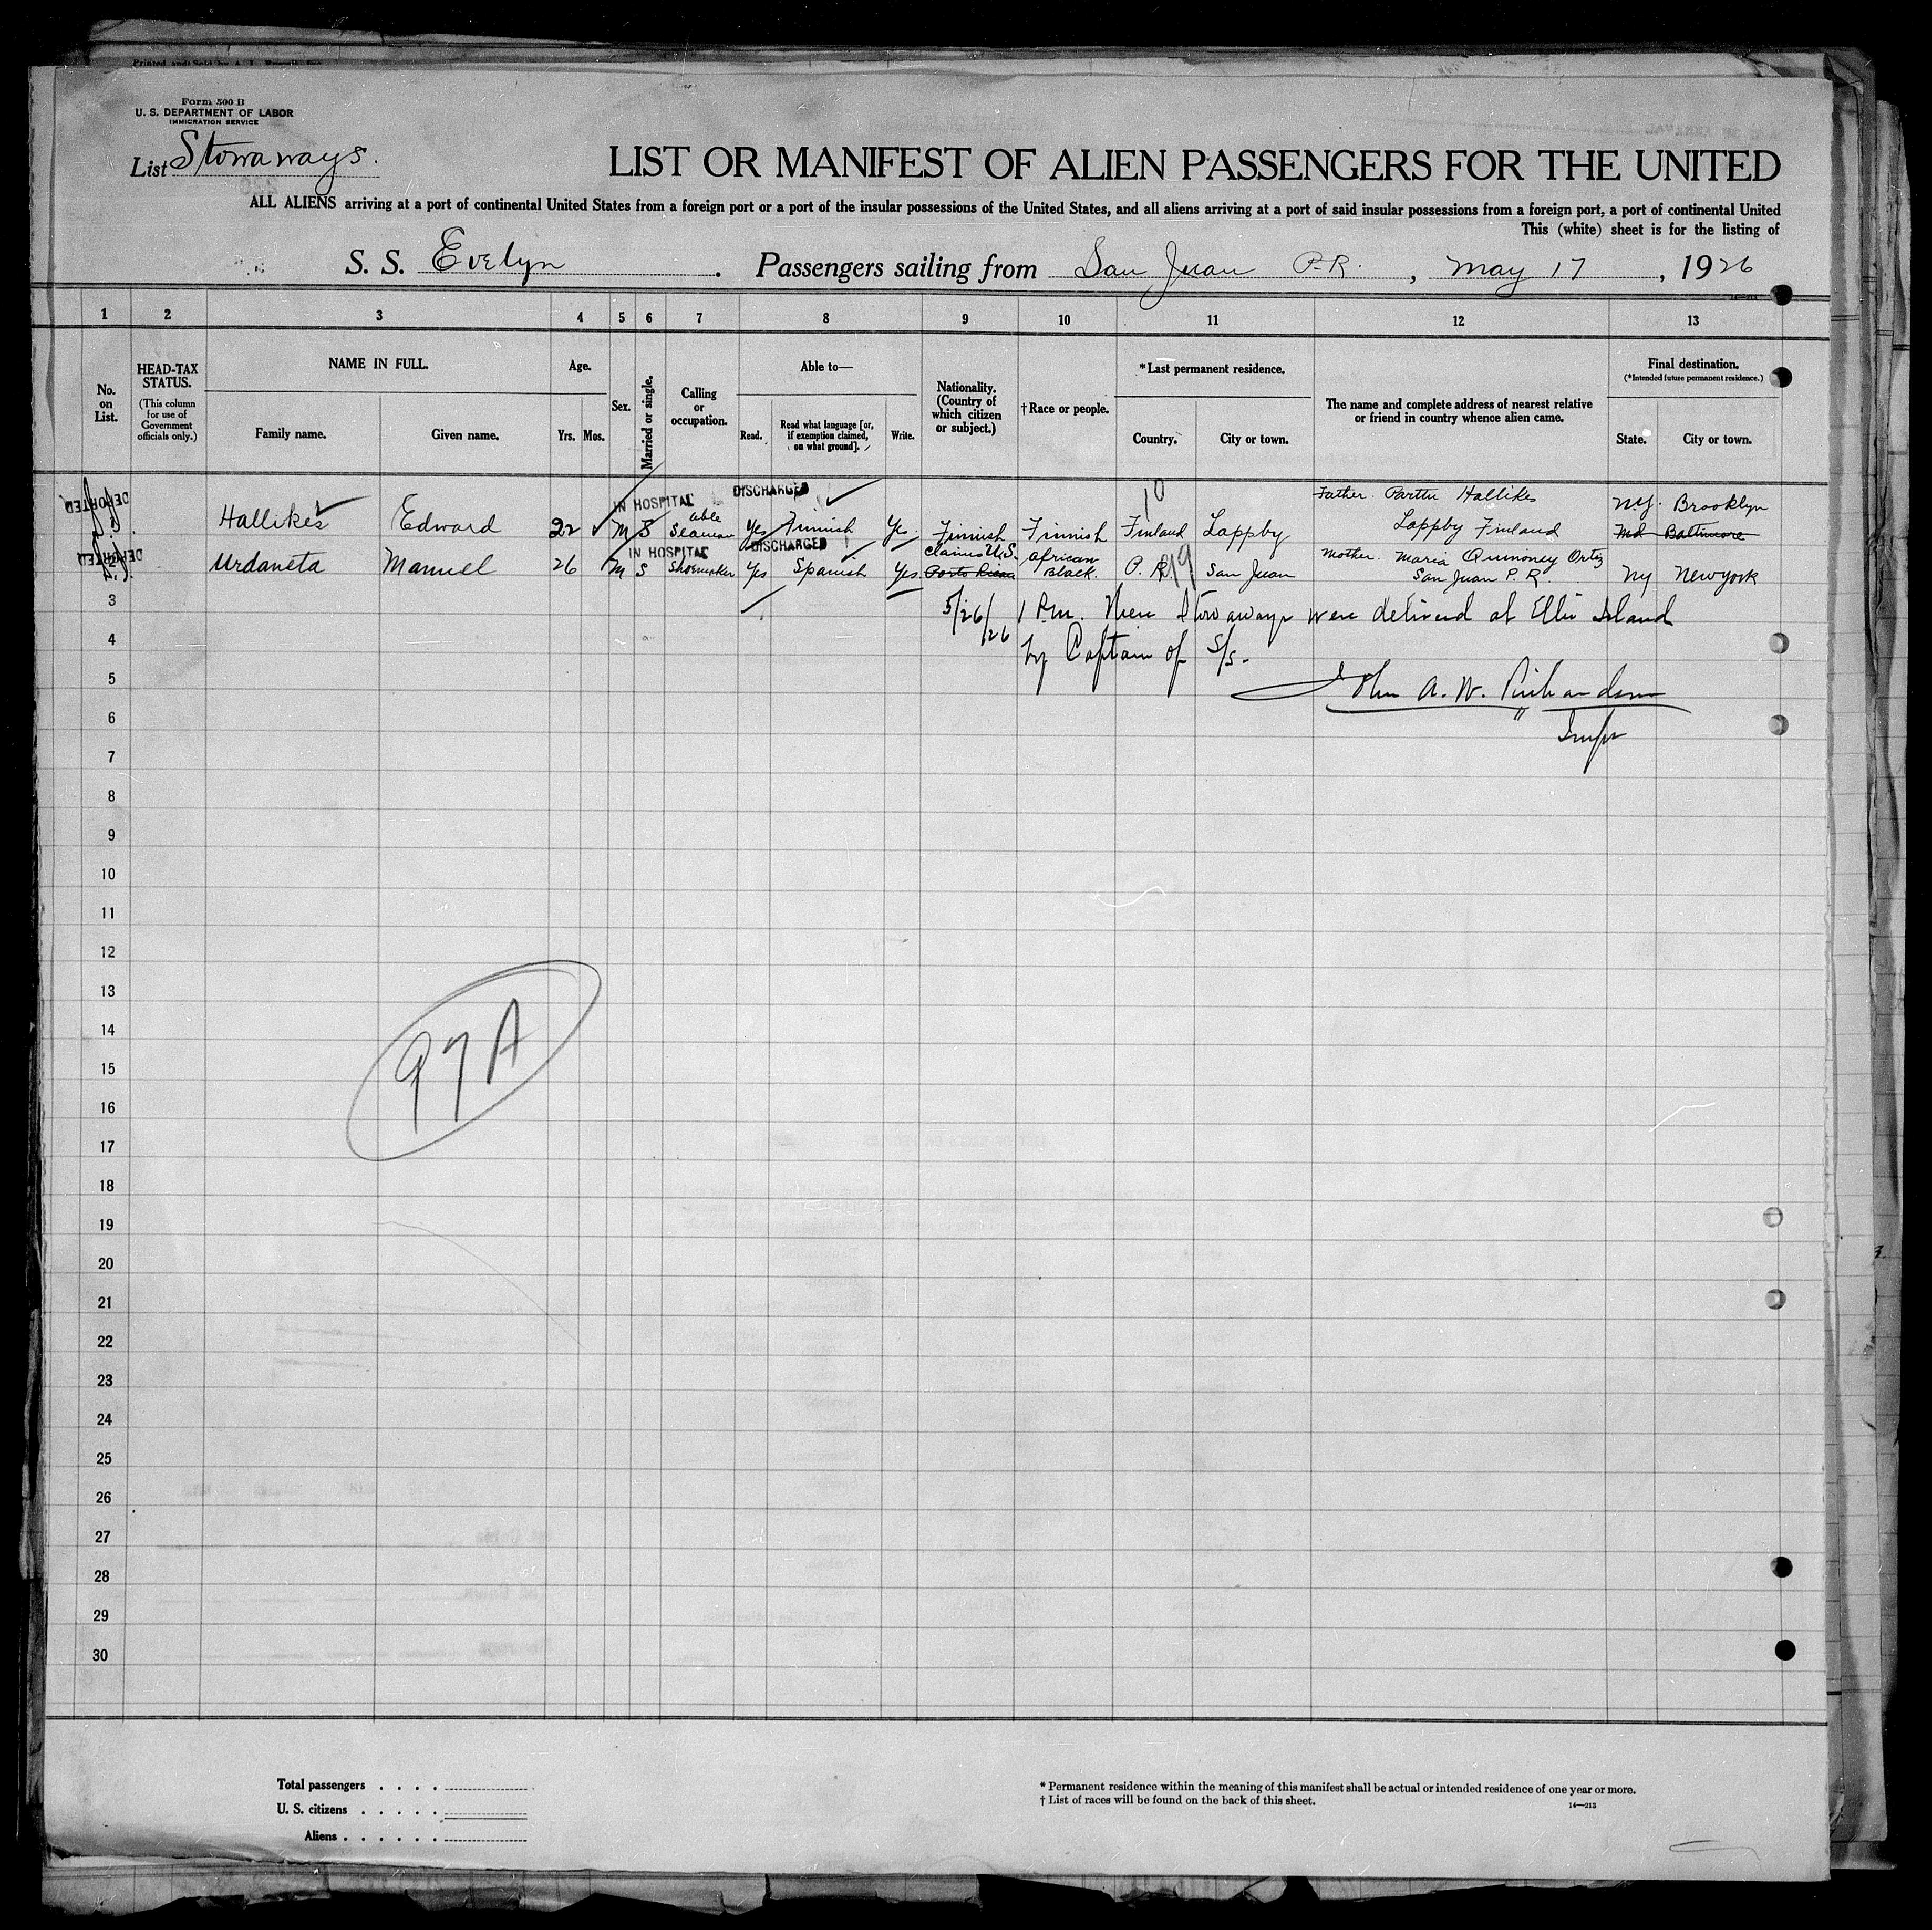 Form 500 B
U. S. DEPARTMENT OF LABOR
IMMIGRATION SERVICE
List Stowaways.
LIST OR MANIFEST OF ALIEN PASSENGERS FOR THE UNITED
ALL ALIENS arriving at a port of continental United States from a foreign port or a port of the insular possessions of the United States, and all aliens arriving at a port of said insular possessions from a foreign port, a port of continental United
This (white) sheet is for the listing of
S. S. Evelyn . Passengers sailing from San Juan P.R. , May 17 , 1926
14—213
1 2 3 4 5 6 7 8 9 10 11 12 13
No. on List.
HEAD-TAX STATUS.
(This column for use of Government officials only.)
NAME IN FULL.
Family name. Given name.
Age.
Yrs. Mos.
Sex.
Married or single.
Calling or occupation.
Able to—
Read. Read what language [or, if exemption claimed, on what ground]. Write.
Nationality. (Country of which citizen or subject.)
†Race or people.
*Last permanent residence.
Country. City or town.
The name and complete address of nearest relative or friend in country whence alien came.
Final destination.
(*Intended future permanent residence.)
State. City or town.
DEPORTED IN HOSPITAL DISCHARGED 10
Hallikes Edward 22 M S able Seaman Yes Finnish Yes Finnish Finnish Finland Lappby Father. Parttu Hallikes Lappby Finland N.Y. Brooklyn
Md Baltimore
DEPORTED IN HOSPITAL DISCHARGED
Urdaneta Manuel 26 M S Shoemaker Yes Spanish Yes claims U.S. Porto Rican African Black. P. R. 19 San Juan Mother. Maria Quinoney Ortiz San Juan P. R. Ny New York
3 5/26/26 1 P.m. These Stowaways were delivered at Ellis Island
4 by Captain of S/s.
5 John A. W. Richardson
6 Inspr
7
8
9
10
11
12
13
97A
14
15
16
17
18
19
20
21
22
23
24
25
26
27
28
29
30
Total passengers . . . .
U. S. citizens . . . . .
Aliens . . . . . .
* Permanent residence within the meaning of this manifest shall be actual or intended residence of one year or more.
† List of races will be found on the back of this sheet.
14—213